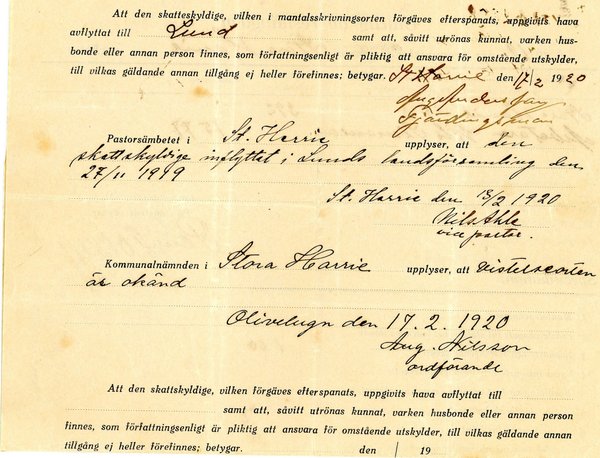 Att den skatteskyldige, vilken i mantalsskrivningsorten förgäves efterspanats, uppgivits hava
avflyttat till Lund samt att, såvitt utrönas kunnat, varken hus-
bonde eller annan person finnes, som författningsenligt är pliktig att ansvara för omstående utskylder,
till vilkas gäldande annan tillgång ej heller förefinnes; betygar. St Harrie den 17/2 1920
Aug Anderson
Fjärdingsman
Pastorsämbetet i St. Harrie upplyser, att den
skattskyldige inflyttat i Lunds landsförsamling den
27/11 1919
St. Harrie den 18/2 1920
Nils Ahle
vice pastor.
Kommunalnämnden i Stora Harrie upplyser, att vistelseorten
är okänd
Olivelugn den 17.2.1920
Aug. Nilsson
ordförande
Att den skattskyldige, vilken förgäves efterspanats, uppgivits hava avflyttat till
samt att, såvitt utrönas kunnat, varken husbonde eller annan person
finnes, som författningsenligt är pliktig att ansvara för omstående utskylder, till vilkas gäldande annan
tillgång ej heller förefinnes; betygar. den / 19